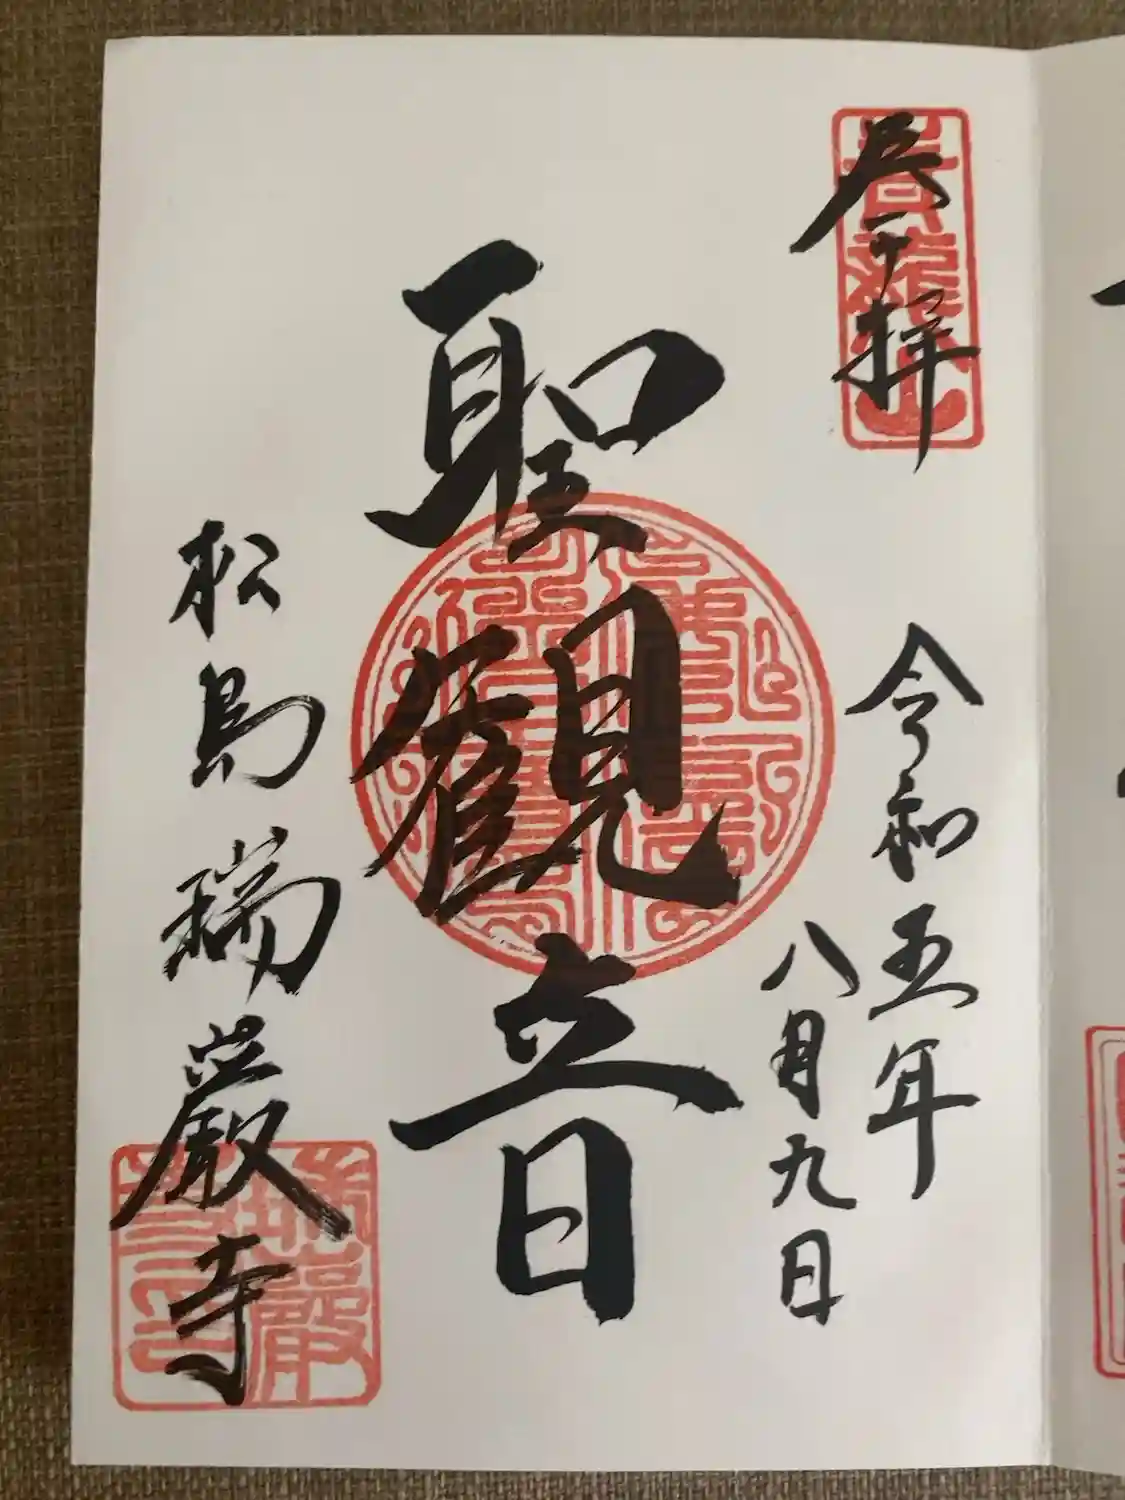 奉拝
令和五年
八月九日
聖観音
松島瑞巌寺